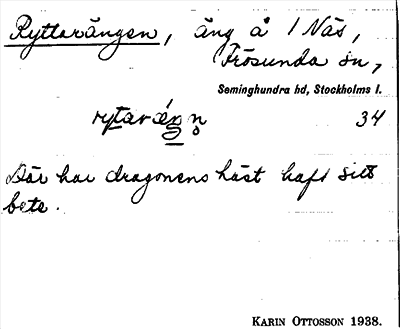 Ryttarängen, äng å 1 Näs,
Frösunda sn,
Seminghundra hd, Stockholms l.
34
Där har dragonens häst haft sitt
bete.
KARIN OTTOSSON 1938.